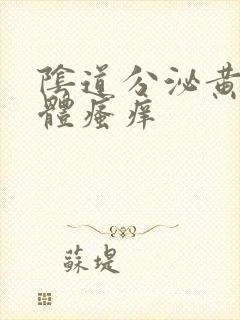 陰道分泌黄
體瘙痒
蘇堤